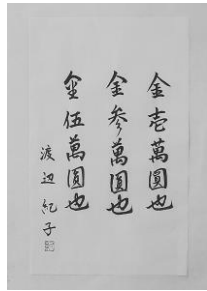 金壱萬圓也
金参萬圓也
金伍萬圓也
渡辺紀子